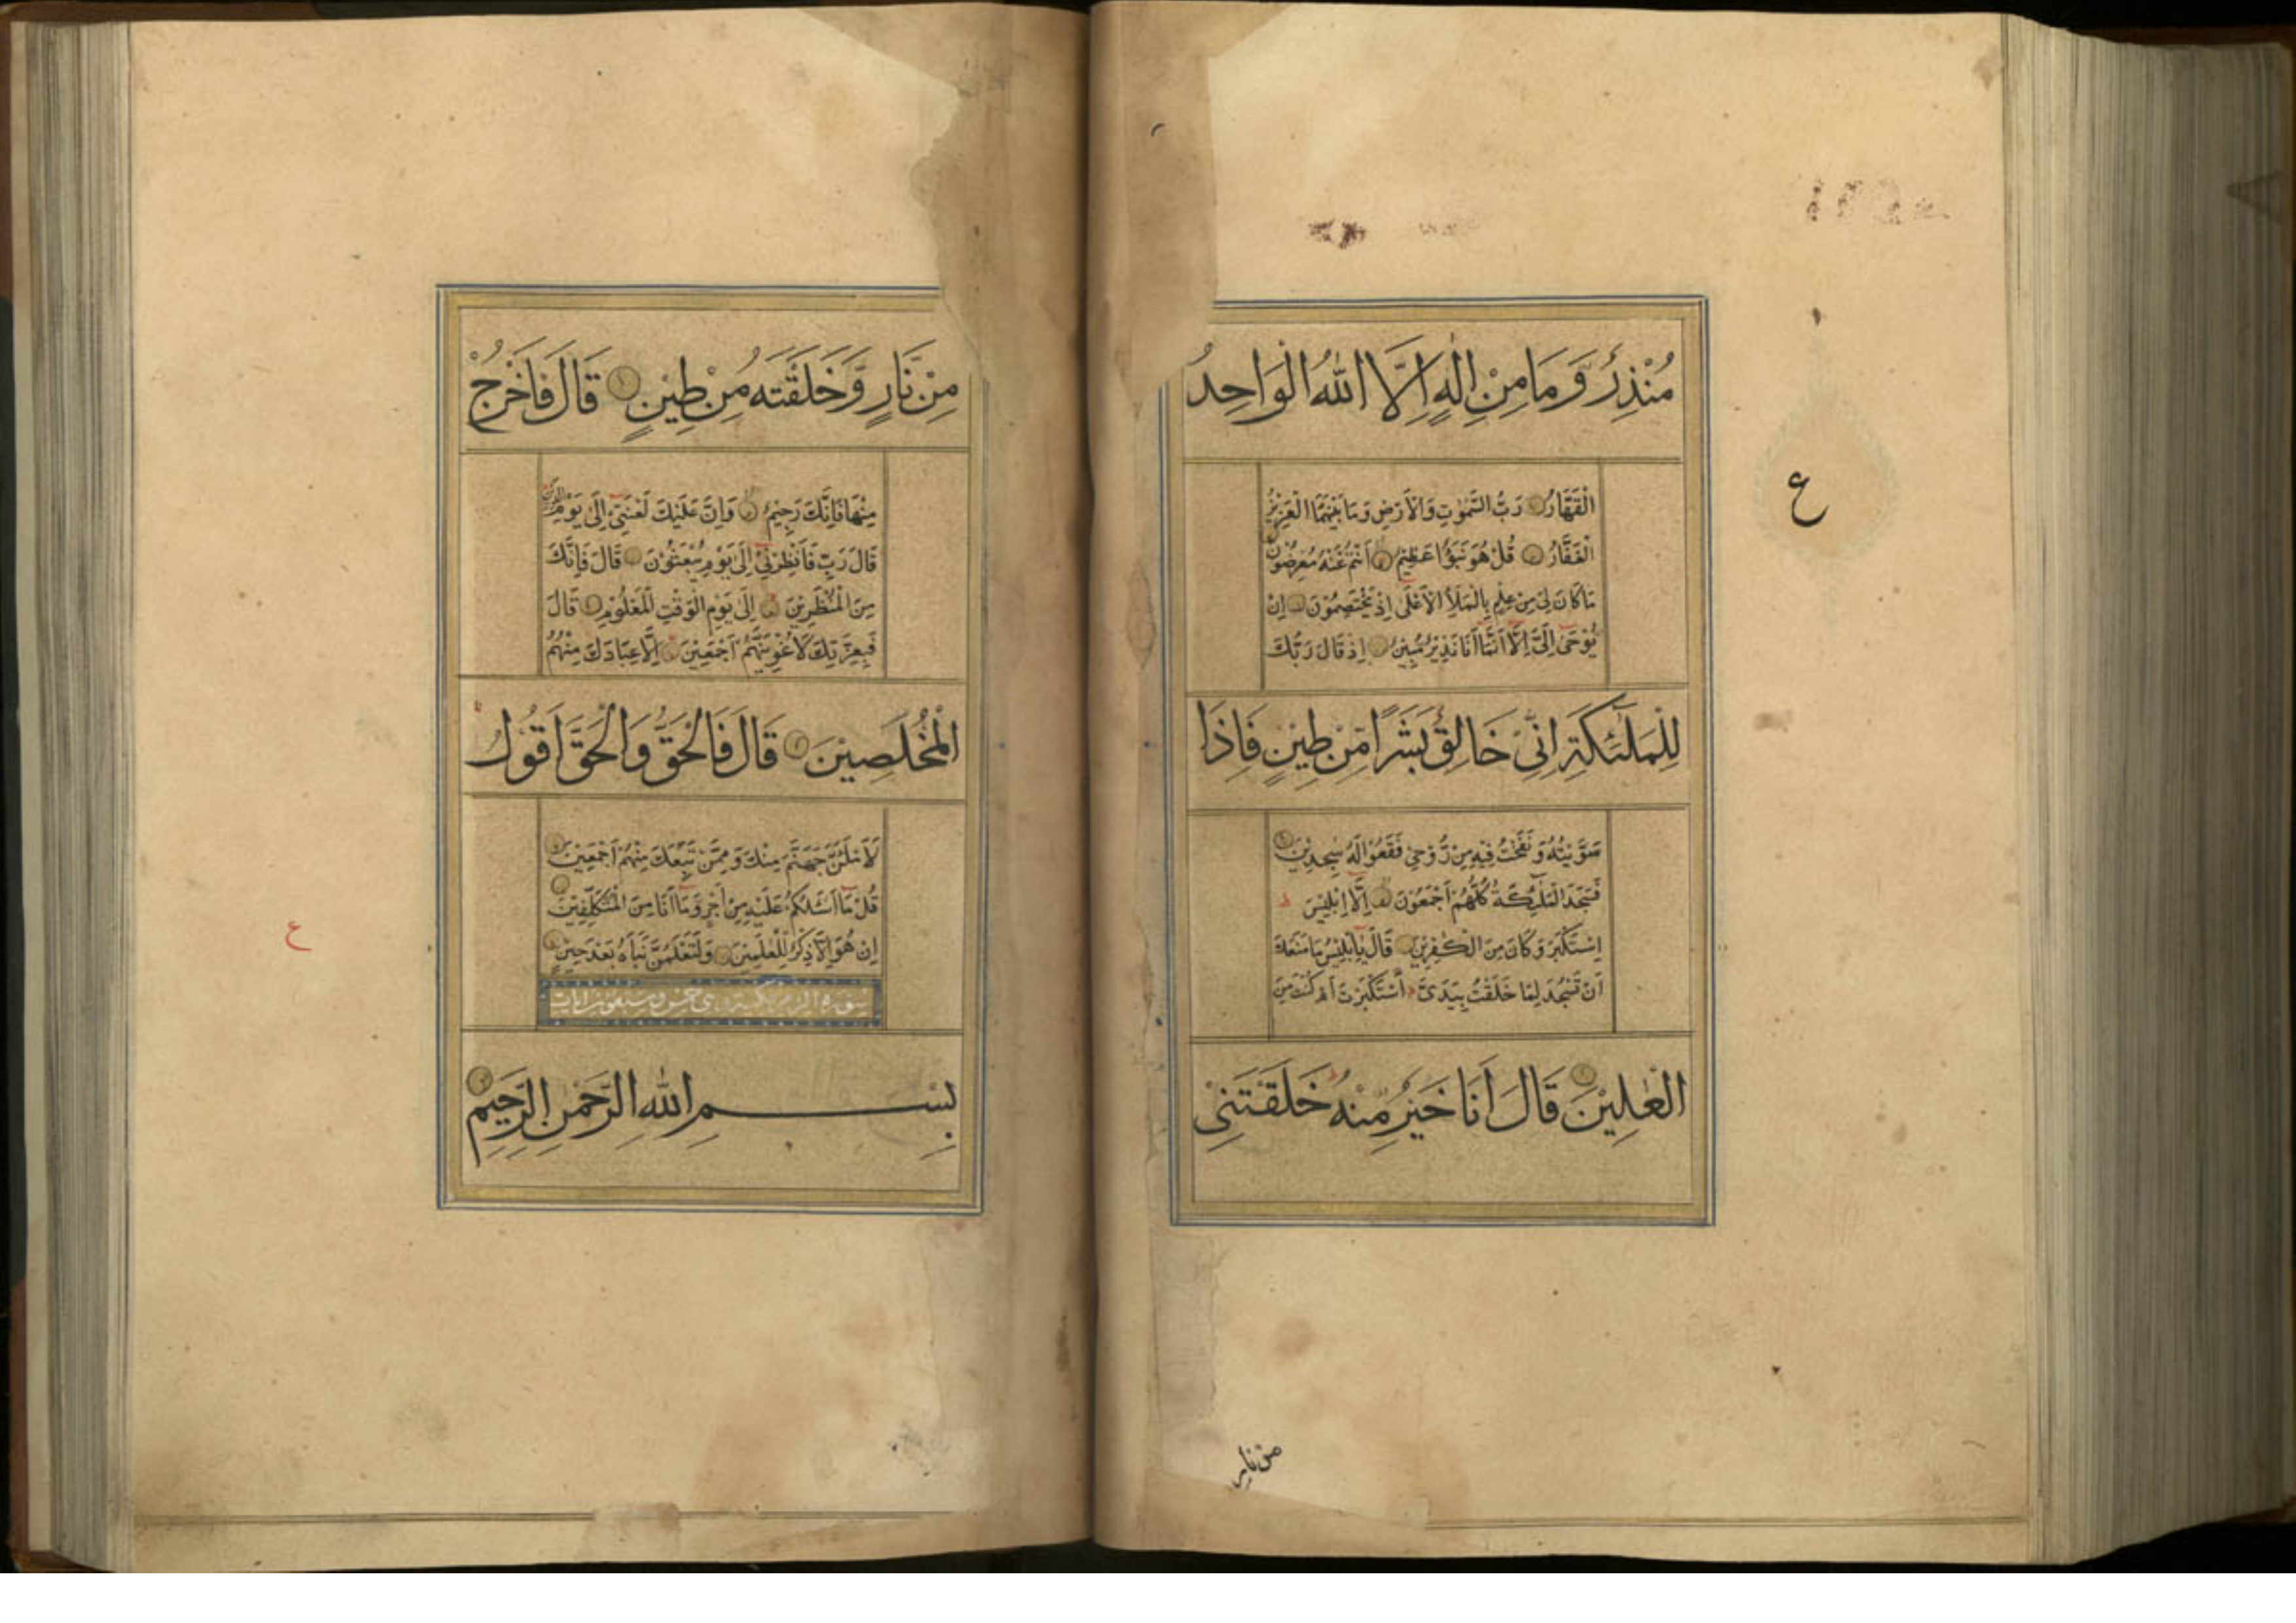 مُنْذِرٌ وَّمَا مِنْ اِلٰهٍ اِلَّا اللّٰهُ الْوَاحِدُ
الْقَهَّارُ رَبُّ السَّمٰوٰتِ وَالْاَرْضِ وَمَا بَيْنَهُمَا الْعَزِيْزُ
الْغَفَّارُ قُلْ هُوَ نَبَؤٌا عَظِيْمٌ اَنْتُمْ عَنْهُ مُعْرِضُوْنَ
مَا كَانَ لِىَ مِنْ عِلْمٍ بِالْمَلَاِ الْاَعْلٰى اِذْ يَخْتَصِمُوْنَ اِنْ
يُوْحٰى اِلَىَّ اِلَّا اَنَّمَا اَنَا نَذِيْرٌ مُّبِيْنٌ اِذْ قَالَ رَبُّكَ
لِلْمَلٰئِكَةِ اِنِّىْ خَالِقٌ بَشَرًا مِّنْ طِيْنٍ فَاِذَا
سَوَّيْتُهُ وَنَفَخْتُ فِيْهِ مِنْ رُّوْحِىْ فَقَعُوْا لَهُ سٰجِدِيْنَ
فَسَجَدَ الْمَلٰئِكَةُ كُلُّهُمْ اَجْمَعُوْنَ اِلَّا اِبْلِيْسَ
اِسْتَكْبَرَ وَكَانَ مِنَ الْكٰفِرِيْنَ قَالَ يَا اِبْلِيْسُ مَا مَنَعَكَ
اَنْ تَسْجُدَ لِمَا خَلَقْتُ بِيَدَىَّ اَسْتَكْبَرْتَ اَمْ كُنْتَ مِنَ
الْعٰلِيْنَ قَالَ اَنَا خَيْرٌ مِّنْهُ خَلَقْتَنِىْ
ع
من نار
مِنْ نَّارٍ وَّخَلَقْتَهُ مِنْ طِيْنٍ قَالَ فَاخْرُجْ
مِنْهَا فَاِنَّكَ رَجِيْمٌ وَاِنَّ عَلَيْكَ لَعْنَتِىْ اِلٰى يَوْمِ الدِّيْنِ
قَالَ رَبِّ فَاَنْظِرْنِىْ اِلٰى يَوْمِ يُبْعَثُوْنَ قَالَ فَاِنَّكَ
مِنَ الْمُنْظَرِيْنَ اِلٰى يَوْمِ الْوَقْتِ الْمَعْلُوْمِ قَالَ
فَبِعِزَّتِكَ لَاُغْوِيَنَّهُمْ اَجْمَعِيْنَ اِلَّا عِبَادَكَ مِنْهُمُ
الْمُخْلَصِيْنَ قَالَ فَالْحَقُّ وَالْحَقَّ اَقُوْلُ
لَاَمْلَئَنَّ جَهَنَّمَ مِنْكَ وَمِمَّنْ تَبِعَكَ مِنْهُمْ اَجْمَعِيْنَ
قُلْ مَا اَسْئَلُكُمْ عَلَيْهِ مِنْ اَجْرٍ وَّمَا اَنَا مِنَ الْمُتَكَلِّفِيْنَ
اِنْ هُوَ اِلَّا ذِكْرٌ لِّلْعٰلَمِيْنَ وَلَتَعْلَمُنَّ نَبَاَهُ بَعْدَ حِيْنٍ
سورة الزمر مكية وهى خمس وسبعون ايات
بِسْمِ اللّٰهِ الرَّحْمٰنِ الرَّحِيْمِ
ع